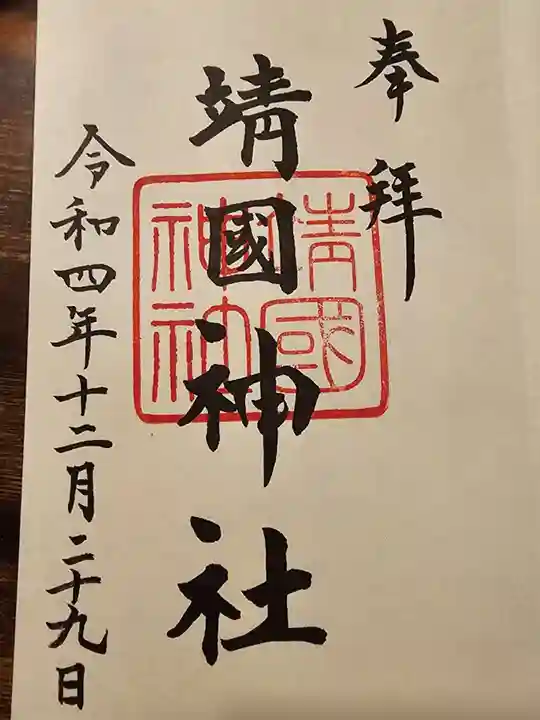 奉拝
靖國神社
靖國神社
令和四年十二月二十九日